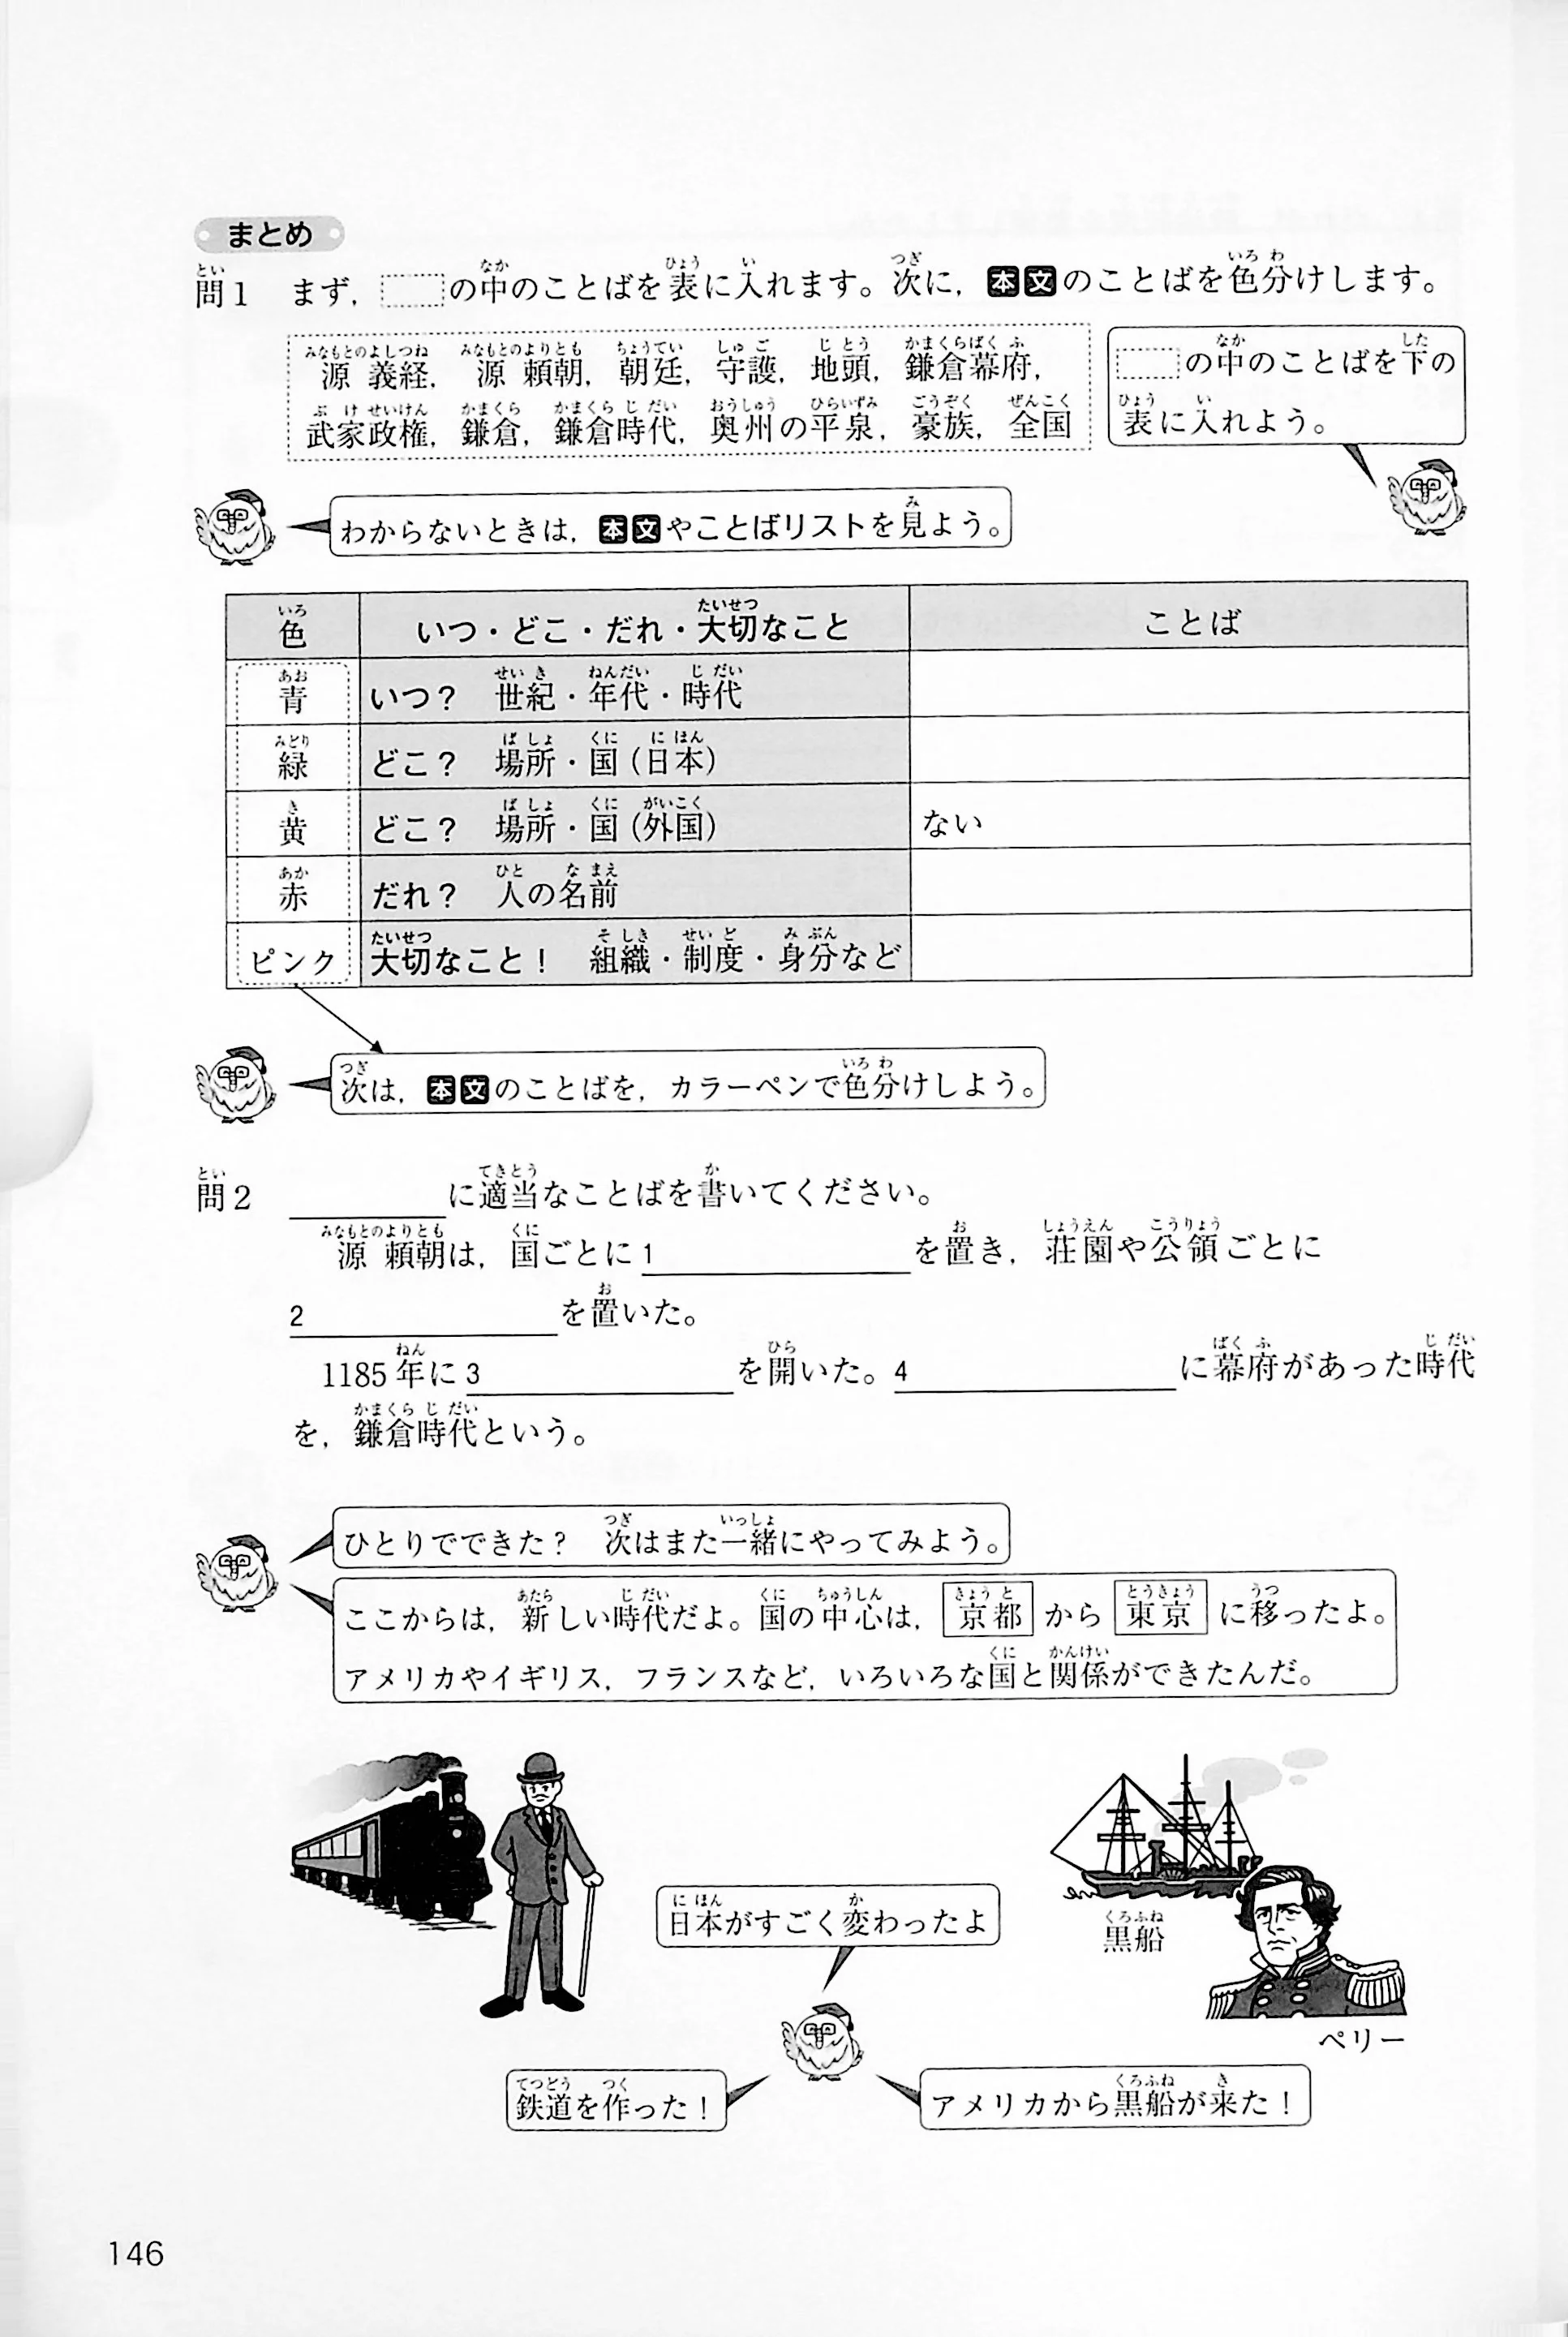 まとめ
問1 まず，の中のことばを表に入れます。次に，本文のことばを色分けします。
源義経，源頼朝，朝廷，守護，地頭，鎌倉幕府，
武家政権，鎌倉，鎌倉時代，奥州の平泉，豪族，全国
の中のことばを下の
表に入れよう。
わからないときは，本文やことばリストを見よう。
色 いつ・どこ・だれ・大切なこと ことば
青 いつ？ 世紀・年代・時代
緑 どこ？ 場所・国（日本）
黄 どこ？ 場所・国（外国） ない
赤 だれ？ 人の名前
ピンク 大切なこと！ 組織・制度・身分など
次は，本文のことばを，カラーペンで色分けしよう。
問2 に適当なことばを書いてください。
源頼朝は，国ごとに1を置き，荘園や公領ごとに
2を置いた。
1185年に3を開いた。4に幕府があった時代
を，鎌倉時代という。
ひとりでできた？ 次はまた一緒にやってみよう。
ここからは，新しい時代だよ。国の中心は，京都から東京に移ったよ。
アメリカやイギリス，フランスなど，いろいろな国と関係ができたんだ。
日本がすごく変わったよ
黒船
ペリー
鉄道を作った！
アメリカから黒船が来た！
146